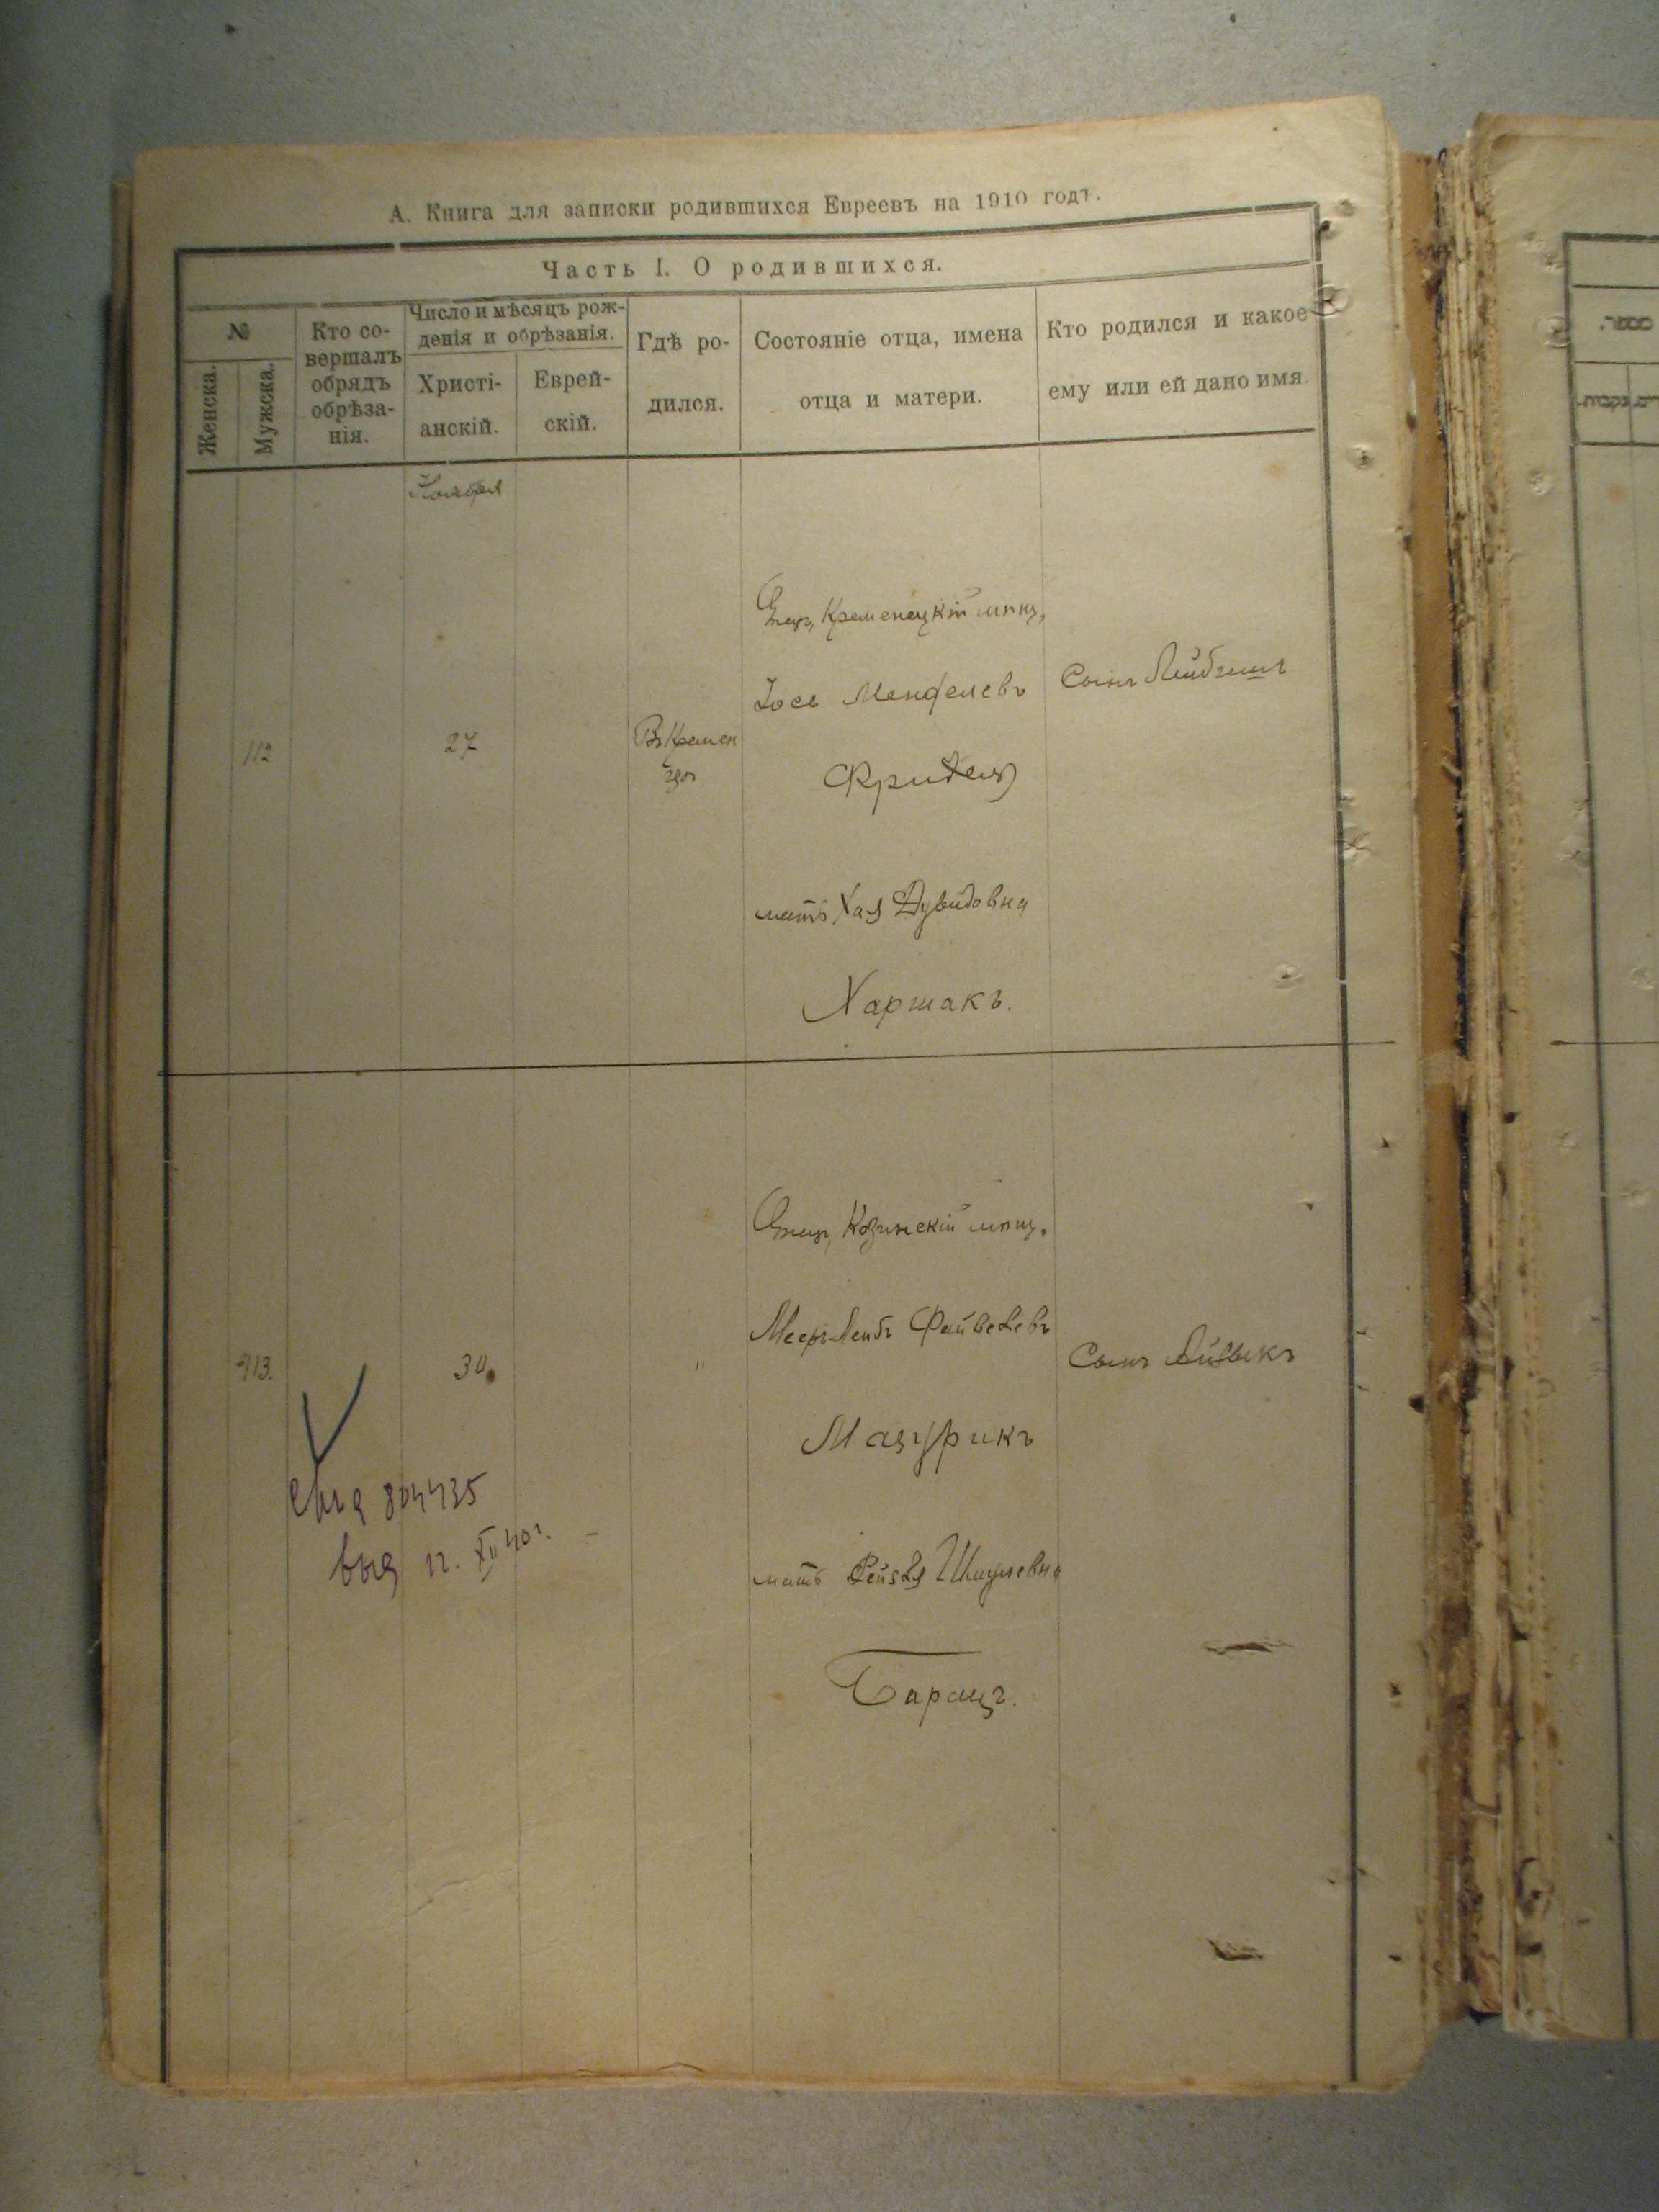 А. Книга для записки родившихся Евреевъ на 1910 годъ.
Часть I. О родившихся.
№
Женска.
Мужска.
Кто со-
вершалъ
обрядъ
обрѣза-
нія.
Число и мѣсяцъ рож-
денія и обрѣзанія.
Христі-
анскій.
Еврей-
скій.
Гдѣ ро-
дился.
Состояніе отца, имена
отца и матери.
Кто родился и какое
ему или ей дано имя.
Ноября
112
27
Въ Кремен
цѣ
Отецъ, Кременецкій мѣщ.
Іось Менделевъ
мать Хая Дувидовна
Харшакъ.
Сынъ Лейбишъ
113.
30.
"
Отецъ, Козинскій мѣщ.
Мееръ-Лейбъ Файвелевъ
Мазурикъ
мать Рейзя Шмулевна
Барацъ.
Сынъ Айзыкъ
804435
выд 12. XII 40 г.